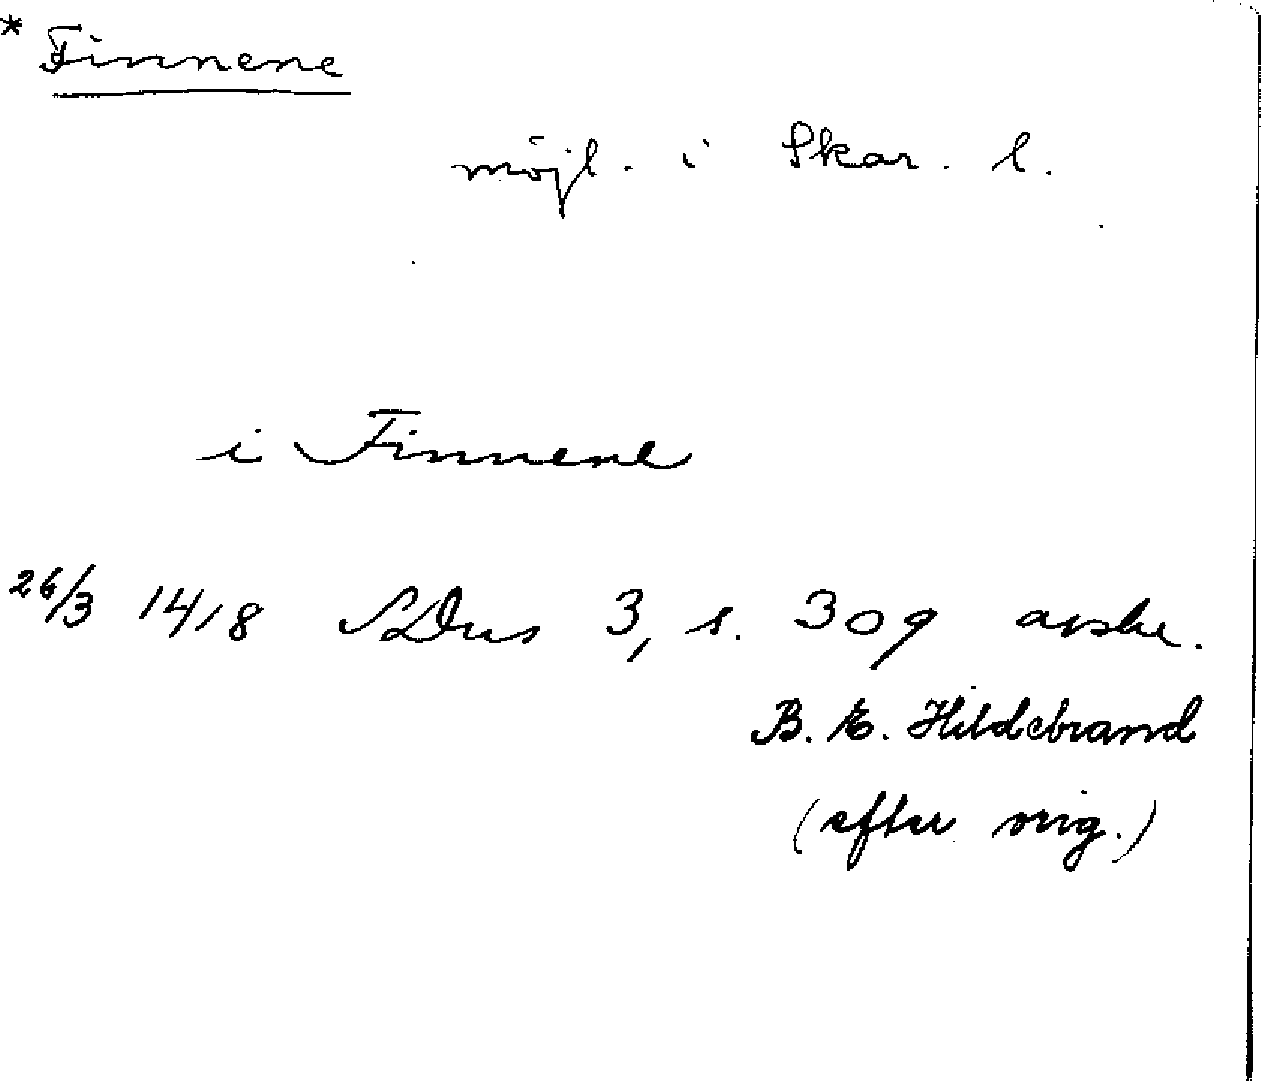 * Finnene
möjl. i Skar. l.
i Finnene
26/3 1418 SDns 3, s. 309 avskr.
B. E. Hildebrand
(efter orig.)